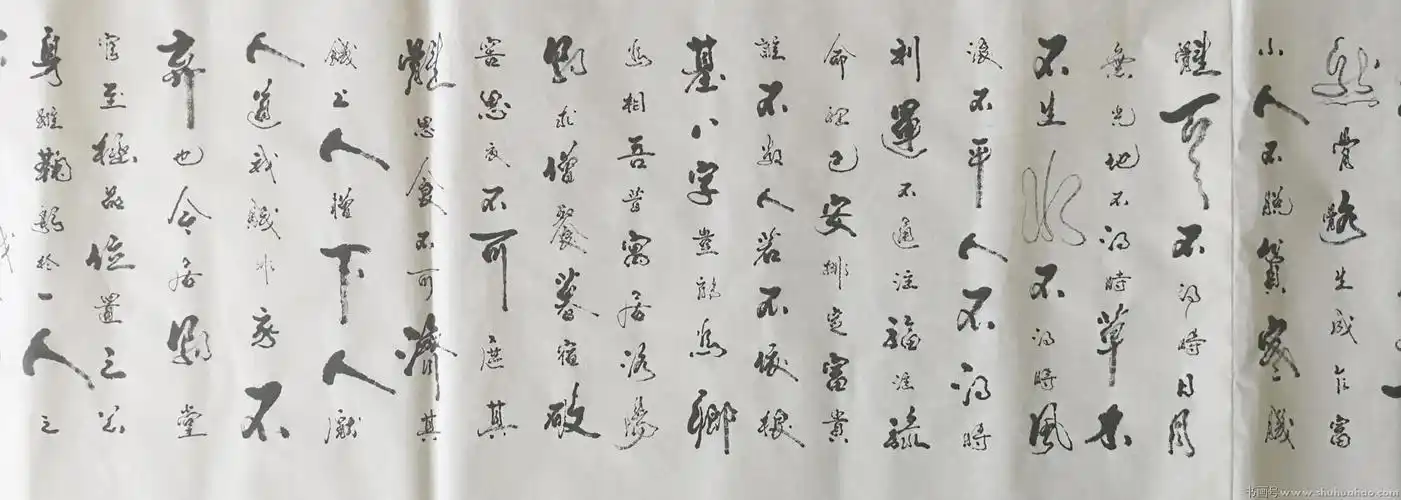 然骨骼生成乍富
小人不脱貧寒肌
體天不得時日月
無光地不得時草木
不生水不得時風
浪不平人不得時
利運不通注福注禄
命裡已安排定富貴
誰不欲人若不依根
基八字豈能為卿
為相吾昔寓居洛陽
朝求僧餐暮宿破
窖思衣不可遮其
體思食不可濟其
饑上人憎下人厭
人道我賤非我不
棄也今居朝堂
官至極品位置三公
身雖鞠躬於一人之
书画号www.shuhuahao.com